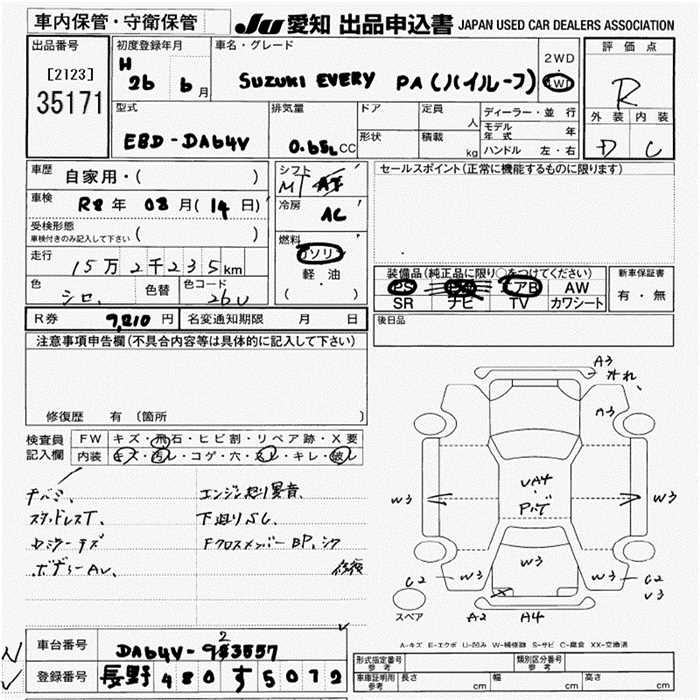 車内保管・守衛保管
JU 愛知 出品申込書 JAPAN USED CAR DEALERS ASSOCIATION
出品番号
[2123]
35171
初度登録年月
H 26 6月
車名・グレード
SUZUKI EVERY PA (ハイルーフ)
2WD
4WD
評価点
R
外装 内装
D C
型式
EBD-DA64V
排気量
0.65L CC
ドア
形状
定員 人
積載 kg
ディーラー・並行
モデル年式 年
ハンドル 左・右
車歴 自家用・( )
車検 R8年 08月(14日)
受検形態
車検付きのみ記入して下さい ( )
走行 15万2千235km
色 シロ 色替 色コード 26U
シフト
MT AT
冷房
AC
燃料
ガソリン
軽・油
( )
セールスポイント(正常に機能するものに限ります)
装備品(純正品に限り○をつけてください)
PS エアB AW
SR ナビ TV カワシート
新車保証書
有・無
R券 9,210円 名変通知期限 月 日
後日品
注意事項申告欄(不具合内容等は具体的に記入して下さい)
修復歴 有 (箇所
検査員記入欄
FW キズ・飛石・ヒビ割・リペア跡・X要
内装 キズ・汚レ・コゲ・穴・スレ・キレ・破レ
エンジン 異音、
スタッドレスT、
下廻りSC、
FクロスメンバーBP、
A3
A3
UA4
W3
W3
W3
C2
W3
W3
C2
V3
A2
A4
スペア
A-キズ E-エクボ U-凹み W-補修跡 S-サビ C-腐食 XX-交換済
車台番号 DA64V-
2
登録番号 長野 480 す 5072
形式指定番号 参考
類別区分番号 参考
車庫証明用 参考 長さ cm 幅 cm 高さ cm